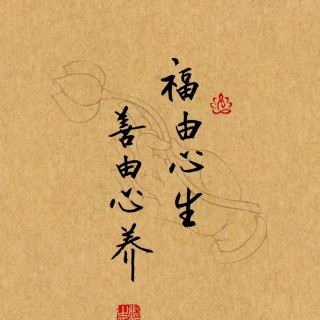 福由心生
善由心养